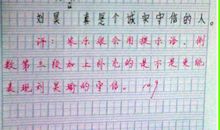 刘昊 真是个诚实守信的人。
评:米乐很会用提示语。倒
数第三段加上补充的是不是更能
表现刘昊瑜的守信。10.9